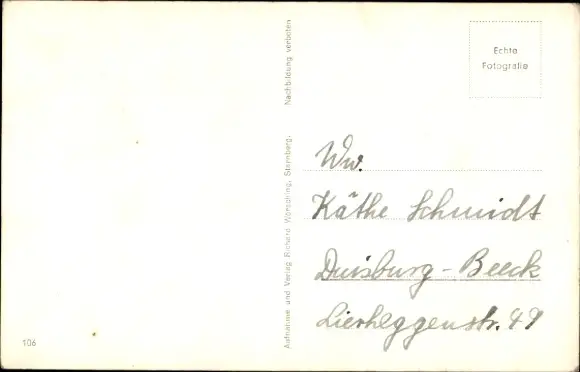 Echte
Fotografie
Nachbildung verboten
Aufnahme und Verlag Richard Wörsching, Starnberg.
Ww.
Käthe Schmidt
Duisburg-Beeck
Lierheggenstr. 49
106